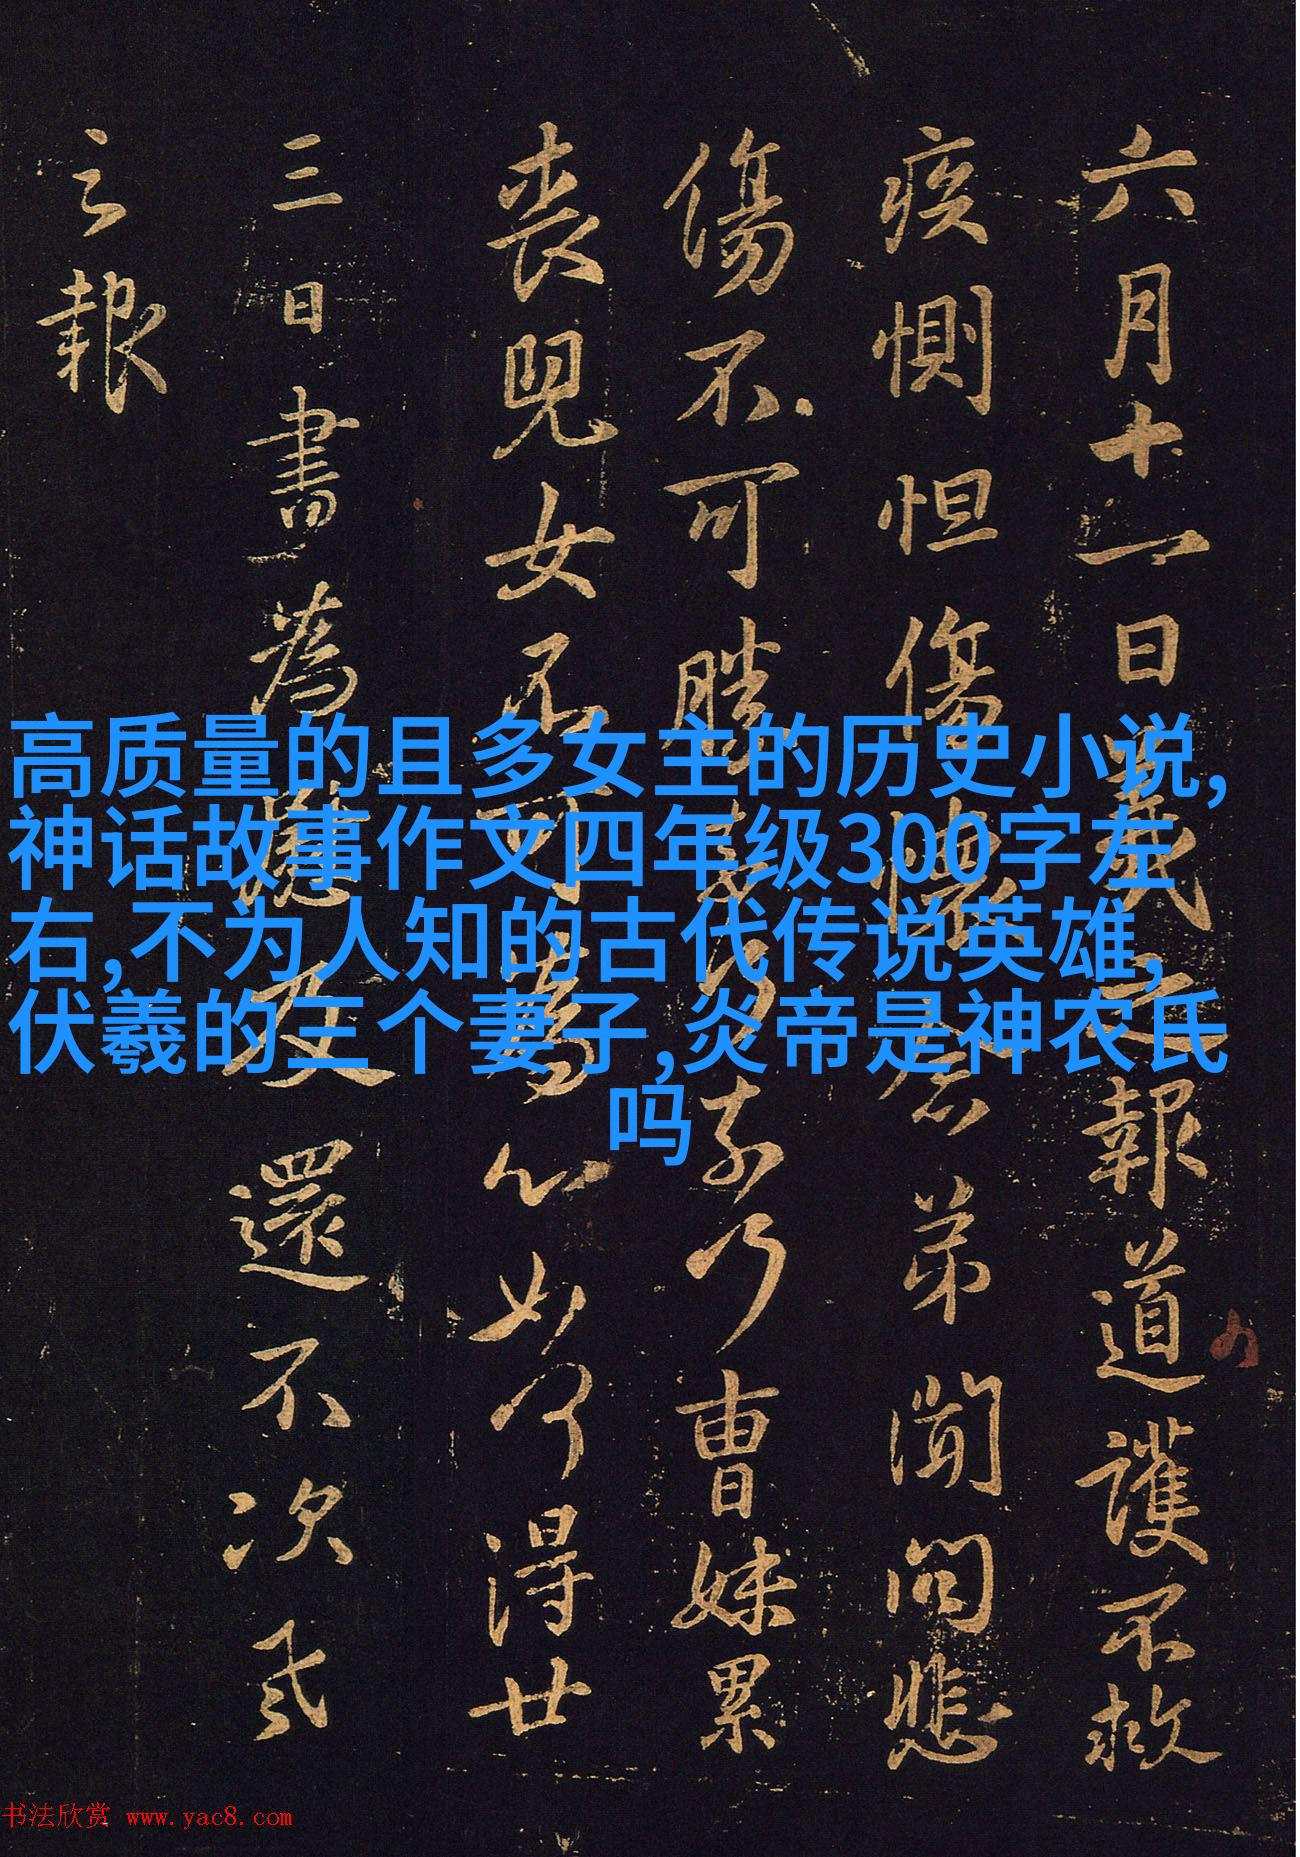 六月十一日羲之報道護不救
疾惻怛傷懷念弟聞問悲
傷不可勝奈何乃曹妹累
喪兒女不可為心如何得廿
三日書為慰及還不次羲
之報
高质量的且多女主的历史小说,
神话故事作文四年级300字左
右,不为人知的古代传说英雄,
伏羲的三个妻子,炎帝是神农氏
吗
书法欣赏 www.yac8.com